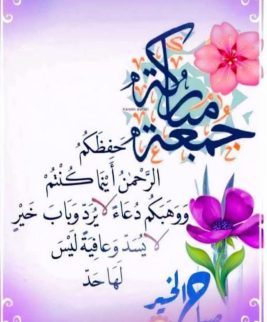 جمعة مباركة
حفِظَكُم
الرَّحْمٰنُ أَيْنَمَا كُنْتُمْ
وَوَهَبَكُم دُعَاءً لَا يُرَدّ وَبَابَ خَيْرٍ
لَا يُسَدّ وَعَافِيَةً لَيْسَ
لَهَا حَدّ
صباح الخير